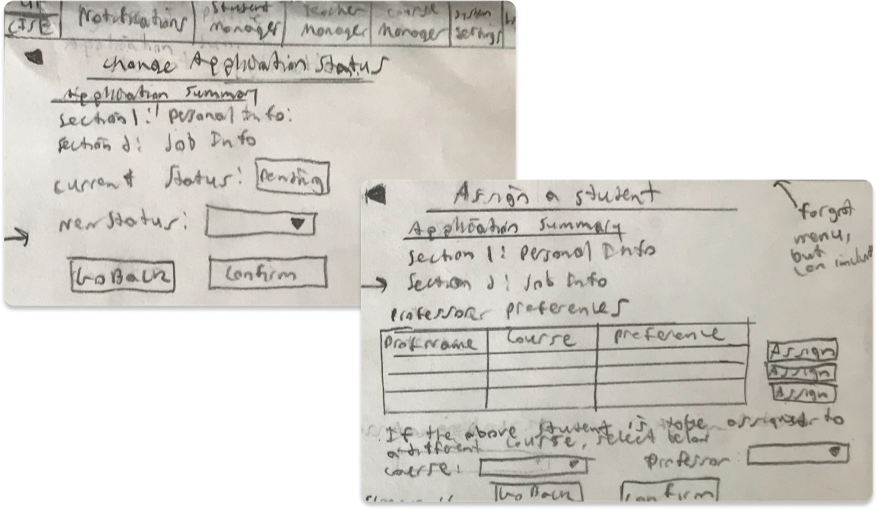 UF
CISE
Notifications
Student
manager
Teacher
manager
course
manager
System
settings
Change Application Status
Application Summary
Section 1: Personal Info:
Section 2: Job Info
Current Status: Pending
New Status:
Go Back
Confirm
Assign a student
Application Summary
Section 1: Personal Info
Section 2: Job Info
Professor preferences
Prof Name
Course
preference
Assign
Assign
Assign
If the above student is to be assigned to
a different course, select below
course:
Professor:
Go Back
Confirm
forgot
menu,
but
can